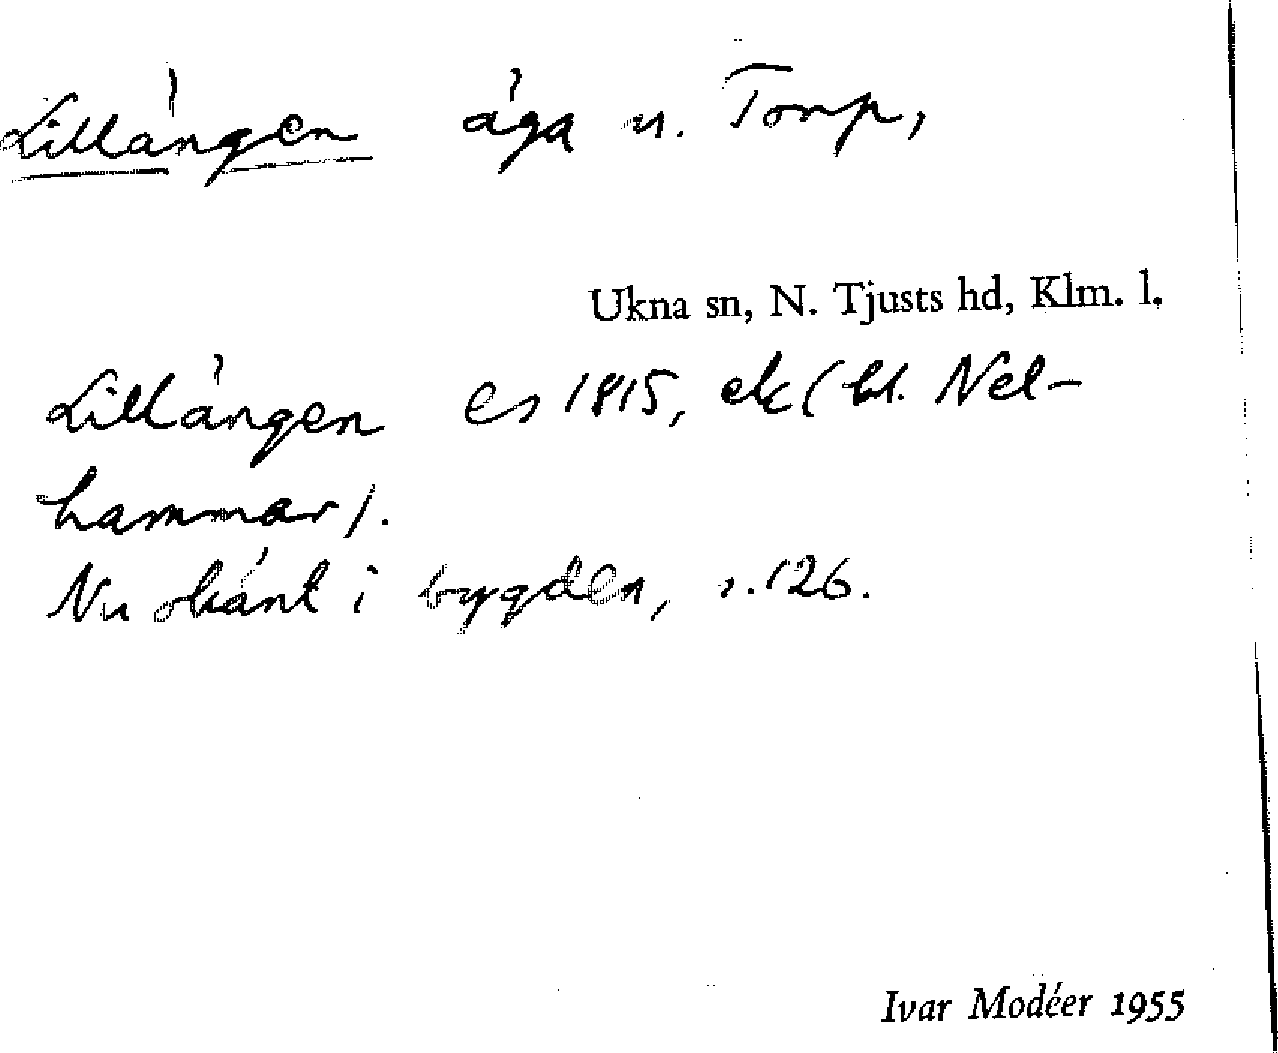 Lillängen äga u. Torp,
Ukna sn, N. Tjusts hd, Klm. l.
Lillängen es 1815, ek (bl. Nel-
hammar).
Nu okänt i bygden, s. 126.
Ivar Modéer 1955